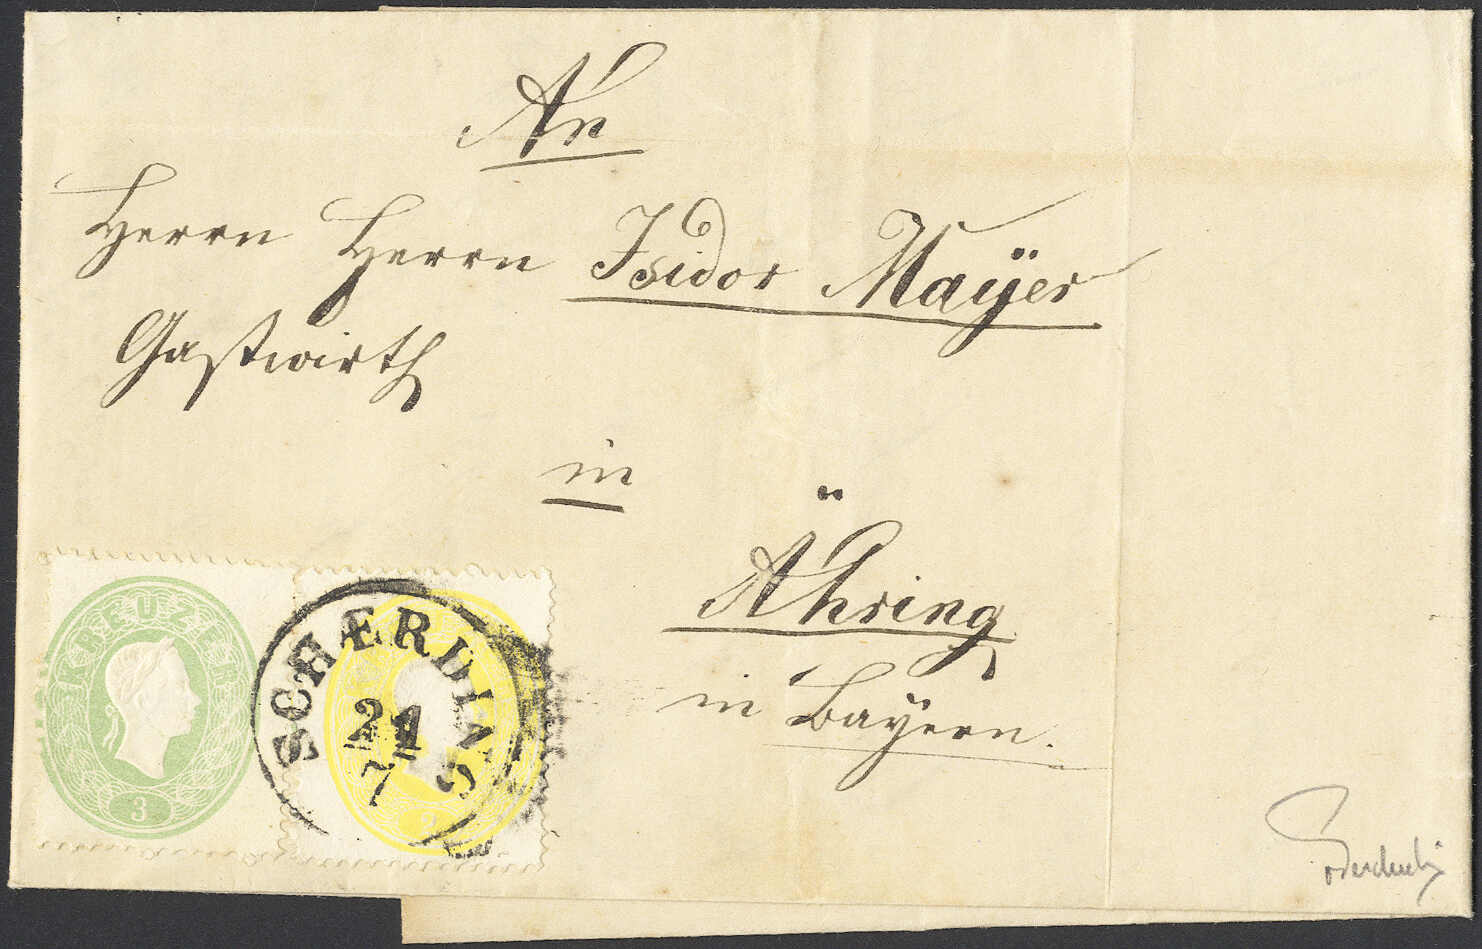 An
Herrn Herrn Isidor Maÿer
Gastwirth
in
Ähring
in Bayern.
KREUZER
3
SCHÆRDING
21
7